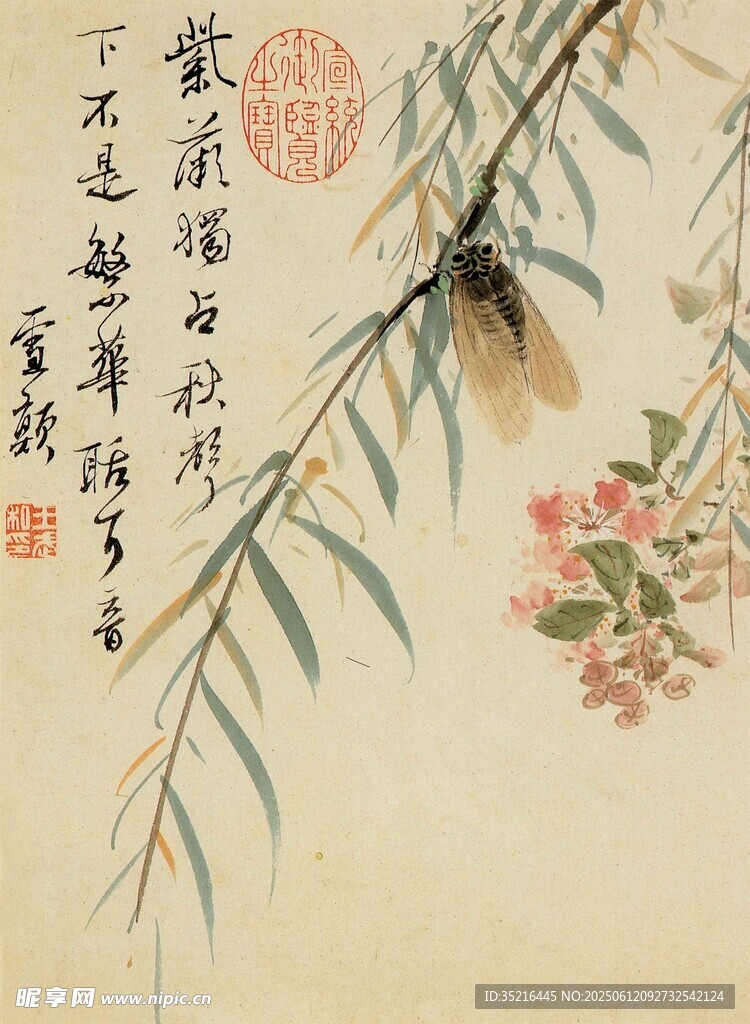 宣統御覽之寶
紫薇獨占秋聲
下不是繁華聒耳音
雪顛
昵享网 www.nipic.cn
ID:35216445 NO:20250612092732542124